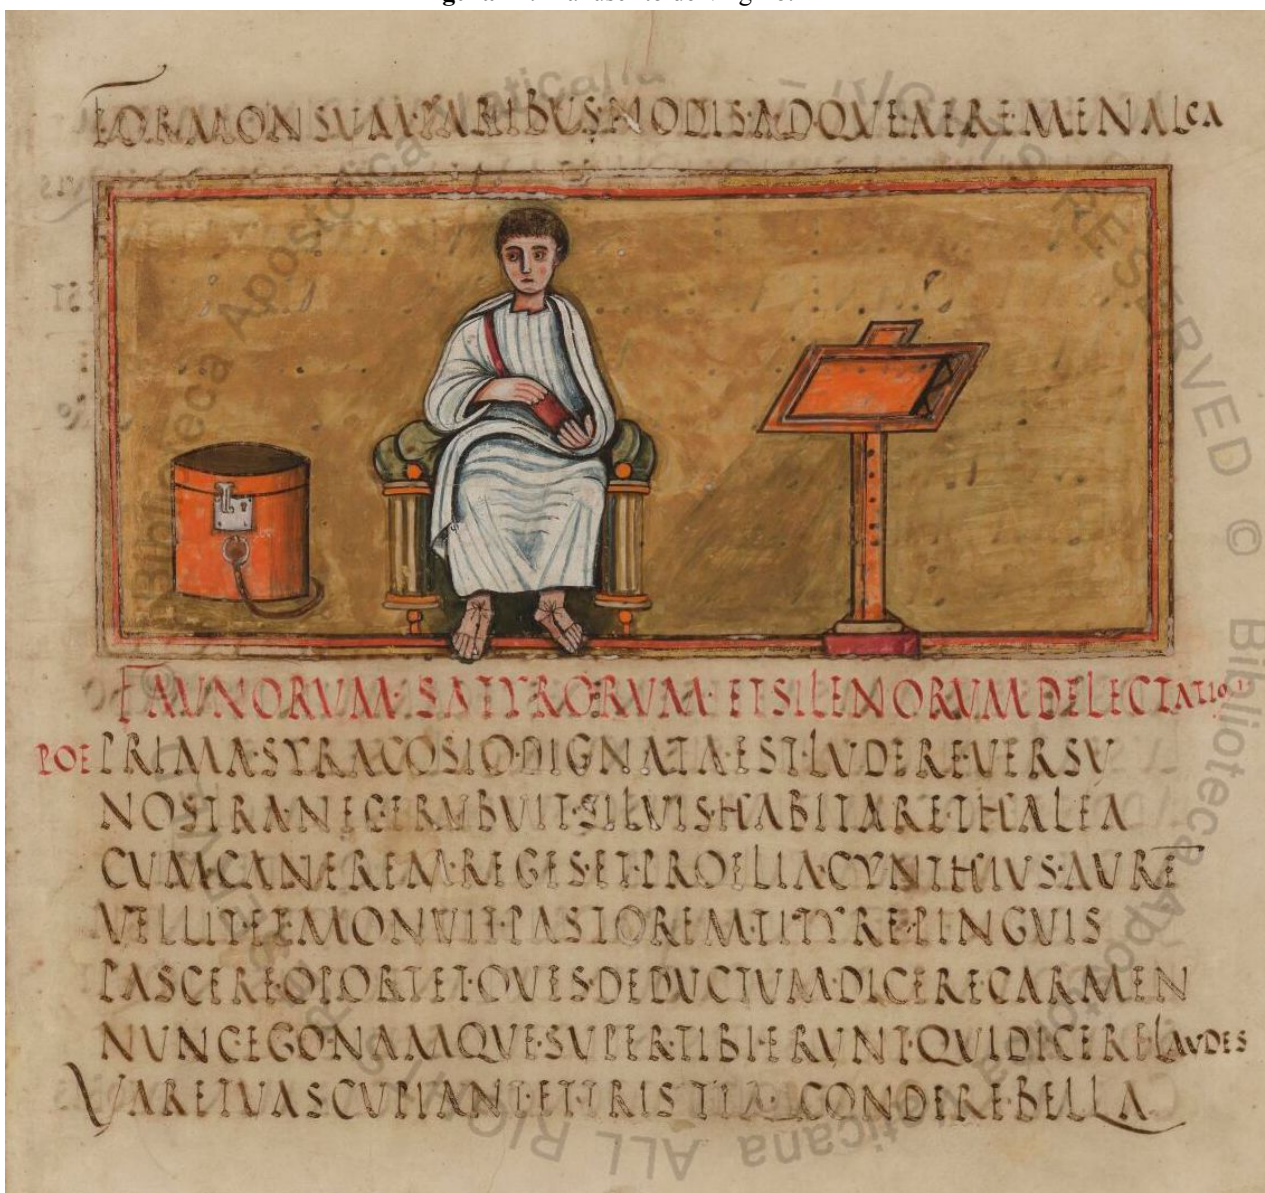 FORMONSVM·PARIBVS·NODIS·ADQVE·AERE·MENALCA
FAVNORVM·SATYRORVM·ET SILENORVM DELECTATIO
POE PRIMA·SYRACOSIO·DIGNATA·EST·LVDERE·VERSV
NOSTRA·NEC·ERVBVIT·SILVIS·HABITARE·THALEA
CVM·CANEREM·REGES·ET·PROELIA·CYNTHIVS·AVRE
VELLIT·ET·MONVIT·PASTOREM·TITYRE·PINGVIS
PASCERE·OPORTET·OVES·DEDVCTVM·DICERE CARMEN
NVNC·EGO·NAMQVE·SVPER·TIBI·ERVNT·QVI DICERE·LAVDES
VARE TVAS CVPIANT·ET·TRISTIA·CONDERE·BELLA
© Biblioteca Apostolica Vaticana ALL RIGHTS RESERVED